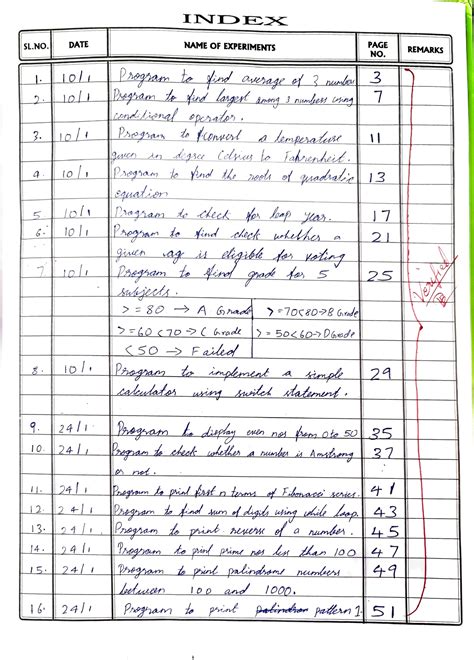 INDEX
SL.NO. DATE NAME OF EXPERIMENTS PAGE NO. REMARKS
1. 10/1 Program to find average of 3 number 3
2. 10/1 Program to find largest among 3 numbers using 7
conditional operator.
3. 10/1 Program to convert a temperature 11
given in degree Celsius to Fahrenheit.
4. 10/1 Program to find the roots of quadratic 13
equation
5 10/1 Program to check for leap year. 17
6. 10/1 Program to find check whether a 21
given age is eligible for voting
7 10/1 Program to find grade for 5 25
subjects.
>=80 → A Grade >=70<80→B Grade
>=60<70→C Grade >=50<60→D Grade
<50 → Failed
Verified
8. 10/1 Program to implement a simple 29
calculator using switch statement.
9. 24/1 Program to display even nos from 0 to 50 35
10. 24/1 Program to check whether a number is Amstrong 37
or not.
11. 24/1 Program to print first n terms of Fibonacci series. 41
12. 24/1 Program to find sum of digits using while loop. 43
13. 24/1 Program to print reverse of a number. 45
14. 24/1 Program to print prime nos less than 100 47
15. 24/1 Program to print palindrome numbers 49
between 100 and 1000.
16. 24/1 Program to print pattern 1. 51